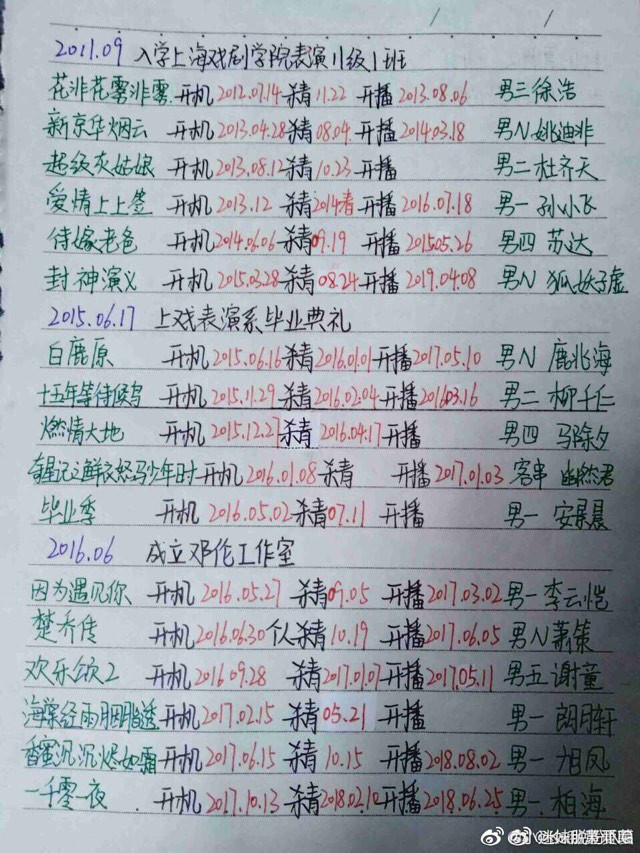 2011.09 入学上海戏剧学院表演11级1班
花非花雾非雾 开机2012.07.14杀青11.22 开播2013.08.06 男三徐浩
新京华烟云 开机2013.04.28杀青08.04 开播2014.03.18 男N姚迪非
超级灰姑娘 开机2013.08.12杀青10.23 开播 男二杜齐天
爱情上上签 开机2013.12 杀青2014春 开播2016.07.18 男一孙小飞
待嫁老爸 开机2014.06.06 杀青09.19 开播201505.26 男四 苏达
封神演义 开机2015.03.28杀青08.24开播2019.04.08 男N 狐妖子虚
2015.06.17 上戏表演系毕业典礼
白鹿原 开机2015.06.16杀青2016.01.01开播2017.05.10 男N 鹿兆海
十五年等待候鸟 开机2015.11.29 杀青2016.02.04开播201603.16 男二 柳千仁
燃情大地 开机2015.12.27杀青 2016.04.17开播 男四 马除夕
奇星记之鲜衣怒马少年时开机2016.01.08杀青 开播2017.01.03 客串 幽然君
毕业季 开机2016.05.02杀青07.11 开播 男一 安景晨
2016.06 成立邓伦工作室
因为遇见你 开机2016.05.27 杀青09.05 开播2017.03.02男一李云恺
楚乔传 开机2016.06.30个人杀青10.19 开播2017.06.05男N萧策
欢乐颂2 开机2016 09.28 杀青2017.01.07开播2017.05.11 男五谢童
海棠经雨胭脂透开机2017.02.15 杀青05.21 开播 男一 朗月轩
香蜜沉沉烬如霜开机2017.06.15 杀青 10.15 开播2018.08.02 男一 旭凤
一千零一夜 开机2017.10.13杀青2018.02.10开播2018.06.25男一柏海